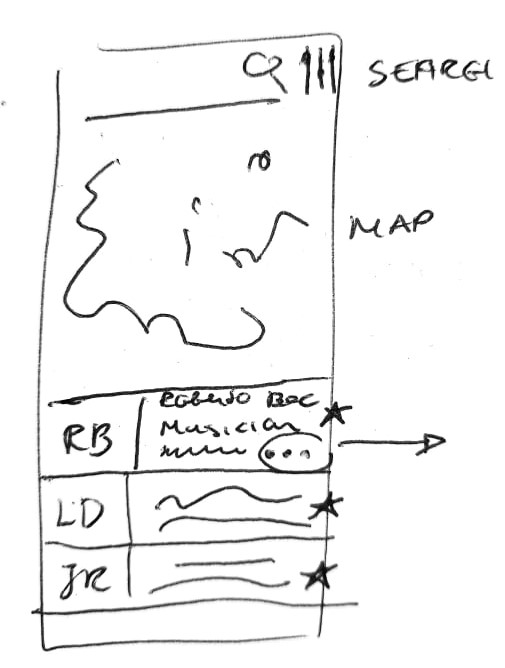 SEARC
MAP
Roberto
RB
Musician
LD
JR